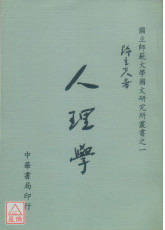 國立師範大學國文研究所叢書之一
陳立夫著
人理學
中華書局印行